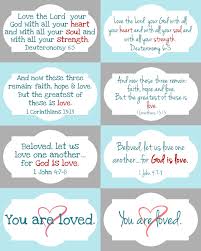 Love the Lord your
God with all your heart
and with all your soul and
with all your strength.
Deuteronomy 6:5
Love the Lord your God with all
your heart and with all your soul
and with all your strength.
Deuteronomy 6:5
And now these three
remain: faith, hope & love.
But the greatest of
these is love.
1 Corinthians 13:13
And now these three remain:
faith, hope and love.
But the greatest of these is
love.
1 Corinthians 13:13
Beloved, let us
love one another...
for God is love.
1 John 4:7-8
Beloved, let us love one
another... for God is love.
1 John 4:7-8
You are loved.
You are loved.